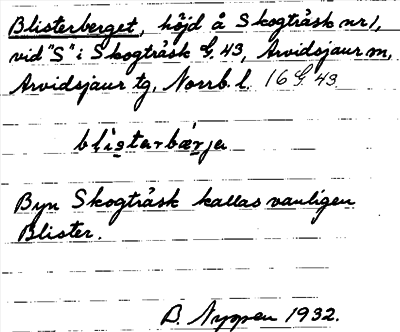 Blisterberget, höjd å Skogträsk nr 1,
vid "S" i Skogträsk G. 43, Arvidsjaur sn,
Arvidsjaur tg, Norrb. l. 16 G. 43
blistarbärja
Byn Skogträsk kallas vanligen
Blister.
B. Nyppen 1932.